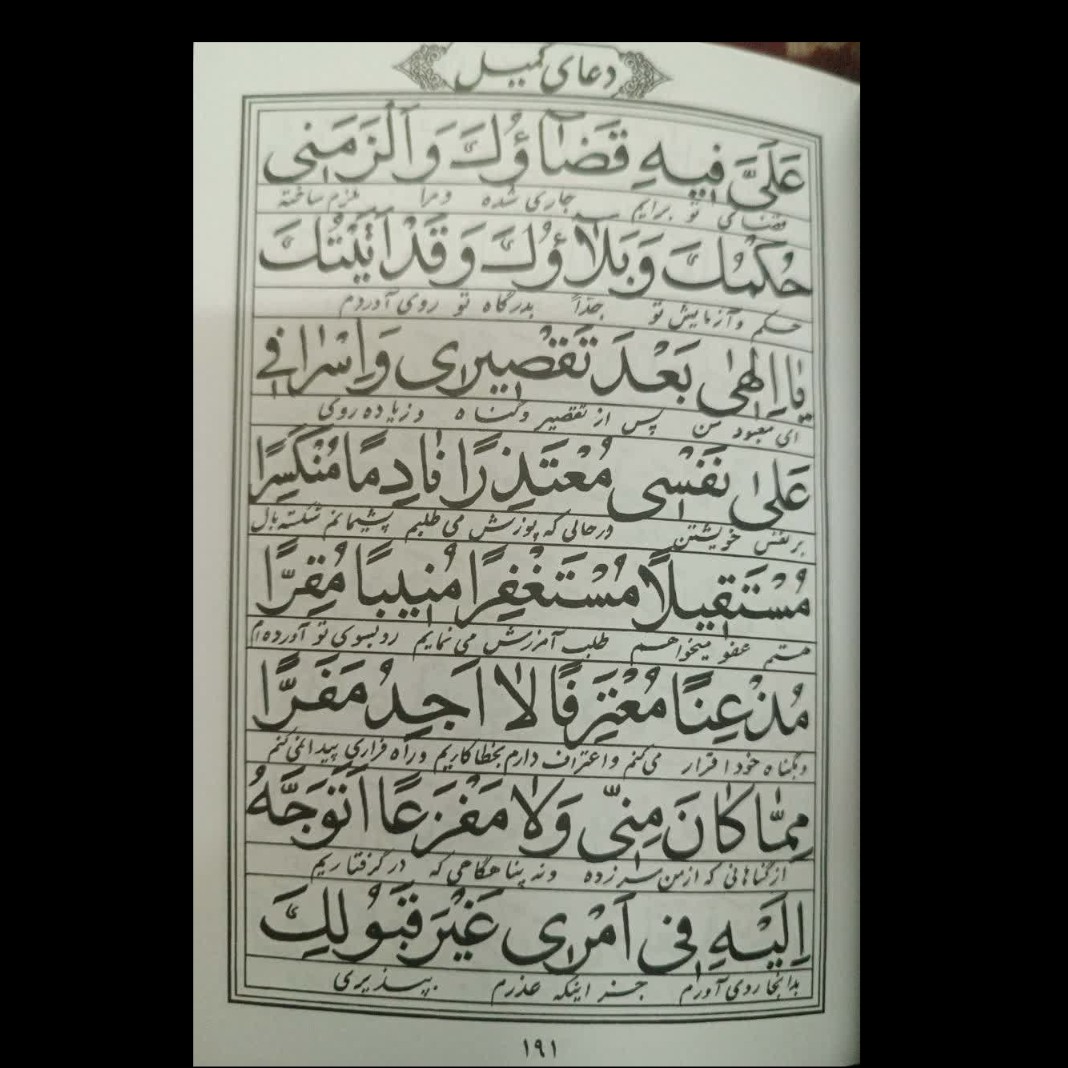 دعای کمیل
عَلَیَّ فیهِ قَضٰاۤؤُکَ وَ اَلْزَمَنی
قضای تو برایم جاری شده و مرا ملزم ساخته
حُکْمُکَ وَ بَلاٰۤؤُکَ وَ قَدْ اَتَیْتُکَ
حکم و آزمایش تو بدرگاه تو روی آوردم
یٰا اِلٰهی بَعْدَ تَقْصیری وَ اِسْرٰافی
ای معبود من پس از تقصیر و گناه و زیاده روی
عَلیٰ نَفْسی مُعْتَذِرًا نٰادِمًا مُنْکَسِرًا
بر نفس خویشتن در حالی که پوزش می طلبم پشیمانم شکسته بال
مُسْتَقیلًا مُسْتَغْفِرًا مُنیبًا مُقِرًّا
هستم عفو میخواهم طلب آمرزش می نمایم رو بسوی تو آورده ام
مُذْعِنًا مُعْتَرِفًا لاٰ اَجِدُ مَفَرًّا
و بگناه خود اقرار می کنم و اعتراف دارم بخطا کاریم و راه فراری پیدا نمی کنم
مِمّٰا کٰانَ مِنّی وَلاٰ مَفْزَعًا اَتَوَجَّهُ
از گناهانی که از من سر زده و نه پناهگاهی که در گرفتاریم
اِلَیْهِ فی اَمْری غَیْرَ قَبُولِکَ
بدانجا روی آورم جز اینکه عذرم بپذیری
۱۹۱